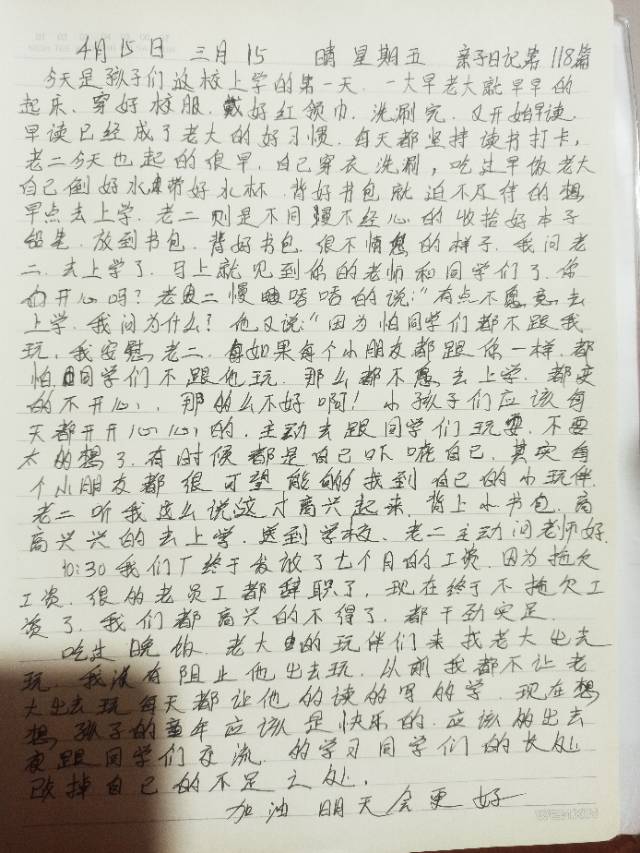 4月15日 三月15 晴 星期五 亲子日记第118篇
今天是孩子们返校上学的第一天. 一大早老大就早早的
起床. 穿好校服. 戴好红领巾. 洗涮完. 又开始早读.
早读已经成了老大的好习惯. 每天都坚持读书打卡.
老二今天也起的很早. 自己穿衣洗涮, 吃过早饭老大
自己倒好水带好水杯. 背好书包就迫不及待的想
早点去上学. 老二则是不同漫不经心的收拾好本子
铅笔. 放到书包. 背好书包. 很不情愿的样子. 我问老
二. 去上学了. 马上就见到你的老师和同学们了. 你
开心吗? 老二慢唔唔的说:"有点不愿意去
上学. 我问为什么? 他又说:"因为怕同学们都不跟我
玩. 我安慰老二. 如果每个小朋友都跟你一样. 都
怕同学们不跟他玩. 那么都不愿去上学. 都变
的不开心. 那多么不好啊! 小孩子们应该每
天都开开心心的. 主动去跟同学们玩耍. 不要
太多想了. 有时候都是自己吓唬自己. 其实每
个小朋友都很可望能够找到自己的小玩伴.
老二听我这么说这才高兴起来. 背上小书包. 高
高兴兴的去上学. 送到学校. 老二主动问老师好.
10:30我们厂终于发放了七个月的工资. 因为拖欠
工资. 很多老员工都辞职了. 现在终于不拖欠工
资了. 我们都高兴的不得了. 都干劲实足.
吃过晚饭. 老大的玩伴们来找老大出去
玩. 我没有阻止他出去玩. 从前我都不让老
大出去玩每天都让他多读多写多学. 现在想
想. 孩子的童年应该是快乐的. 应该多出去
跟同学们交流. 多学习同学们的长处
改掉自己的不足之处.
加油 明天会更好